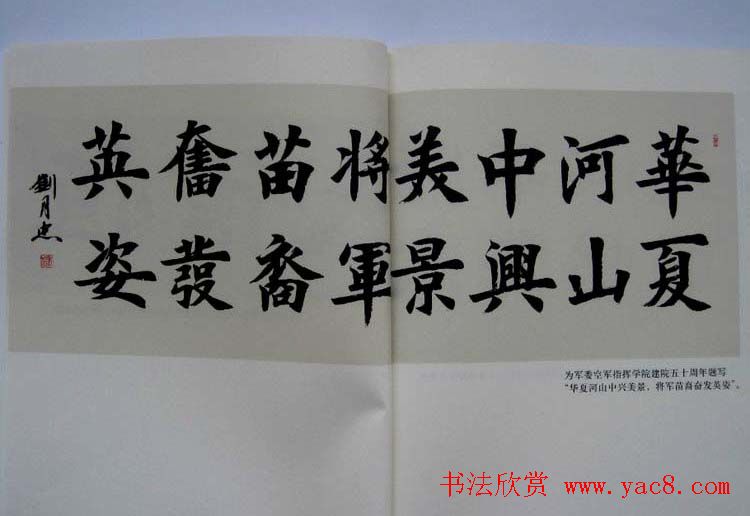 華夏
河山
中興
美景
將軍
苗裔
奮發
英姿
劉月忠
为军委空军指挥学院建院五十周年题写
“华夏河山中兴美景，将军苗裔奋发英姿”。
书法欣赏 www.yac8.com